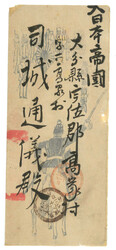 大日本帝國
大分縣宇佐郡高家村
司城通儀殿